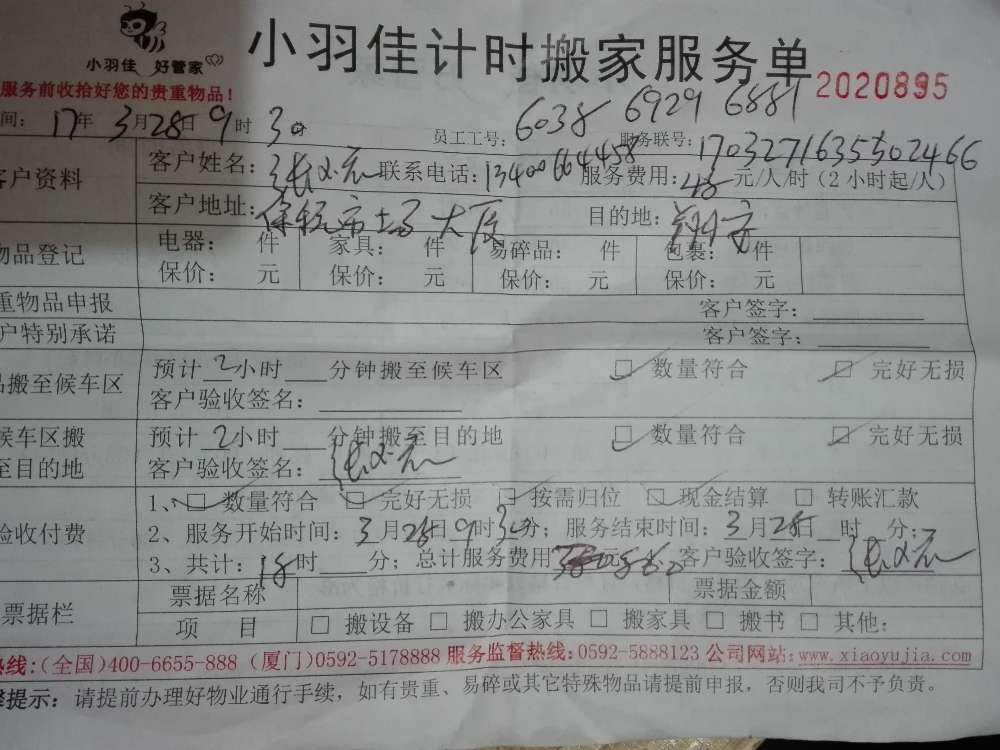 小羽佳 好管家
小羽佳计时搬家服务单
2020895
服务前收拾好您的贵重物品!
间: 17年 3月28日 9时 30
员工工号: 6038 6929 6881
服务联号: 17032716355302466
客户资料
客户姓名: 联系电话: 13400664458 服务费用: 48 元/人/时(2小时起/人)
客户地址: 保税市场大厦 目的地: 翔安
物品登记
电器: 件 家具: 件 易碎品: 件 包裹: 件
保价: 元 保价: 元 保价: 元 保价: 元
重物品申报 客户签字:
户特别承诺 客户签字:
品搬至候车区
预计 2 小时 分钟搬至候车区 □ 数量符合 □ 完好无损
客户验收签名:
候车区搬至目的地
预计 2 小时 分钟搬至目的地 □ 数量符合 □ 完好无损
客户验收签名:
验收付费
1、□ 数量符合 □ 完好无损 □ 按需归位 □ 现金结算 □ 转账汇款
2、服务开始时间: 3月28日9时30分; 服务结束时间: 3月28日 时 分;
3、共计: 18时 分; 总计服务费用 元 客户验收签字:
票据栏
票据名称 票据金额
项 目 □ 搬设备 □ 搬办公家具 □ 搬家具 □ 搬书 □ 其他:
热线:(全国)400-6655-888 (厦门)0592-5178888 服务监督热线:0592-5888123 公司网站:www.xiaoyujia.com
提示: 请提前办理好物业通行手续,如有贵重、易碎或其它特殊物品请提前申报,否则我司不予负责。